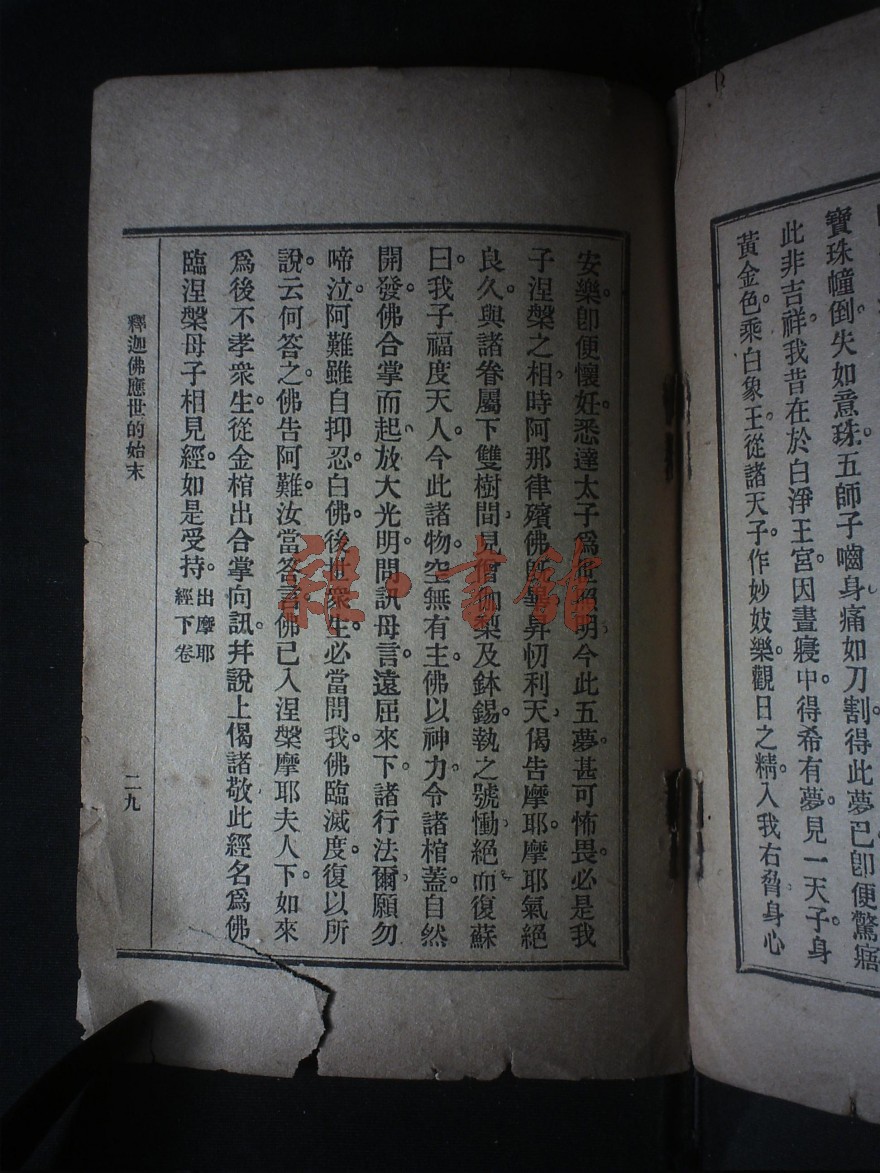 寶珠幢倒。失如意珠。五師子嚙身。痛如刀割。得此夢已。卽便驚寤。
此非吉祥。我昔在於白淨王宮。因晝寢中。得希有夢。見一天子。身
黃金色。乘白象王。從諸天子。作妙妓樂。觀日之精。入我右脅。身心
安樂。卽便懷妊。悉達太子。爲世照明。今此五夢。甚可怖畏。必是我
子涅槃之相。時阿那律殯佛旣畢。昇忉利天。偈告摩耶。摩耶氣絕
良久。與諸眷屬下雙樹間。見僧伽梨及鉢錫。執之號慟。絕而復蘇
曰。我子福度天人。今此諸物。空無有主。佛以神力。令諸棺蓋自然
開發。佛合掌而起。放大光明。問訊母言。遠屈來下。諸行法爾。願勿
啼泣。阿難雖自抑忍。白佛。後世衆生。必當問我。佛臨滅度。復以所
說。云何答之。佛告阿難。汝當答言。佛已入涅槃。摩耶夫人下。如來
爲後不孝衆生。從金棺出。合掌向訊。幷說上偈。諸敬此經。名爲佛
臨涅槃母子相見經。如是受持。出摩耶經下卷
釋迦佛應世的始末
二九
雜·書館